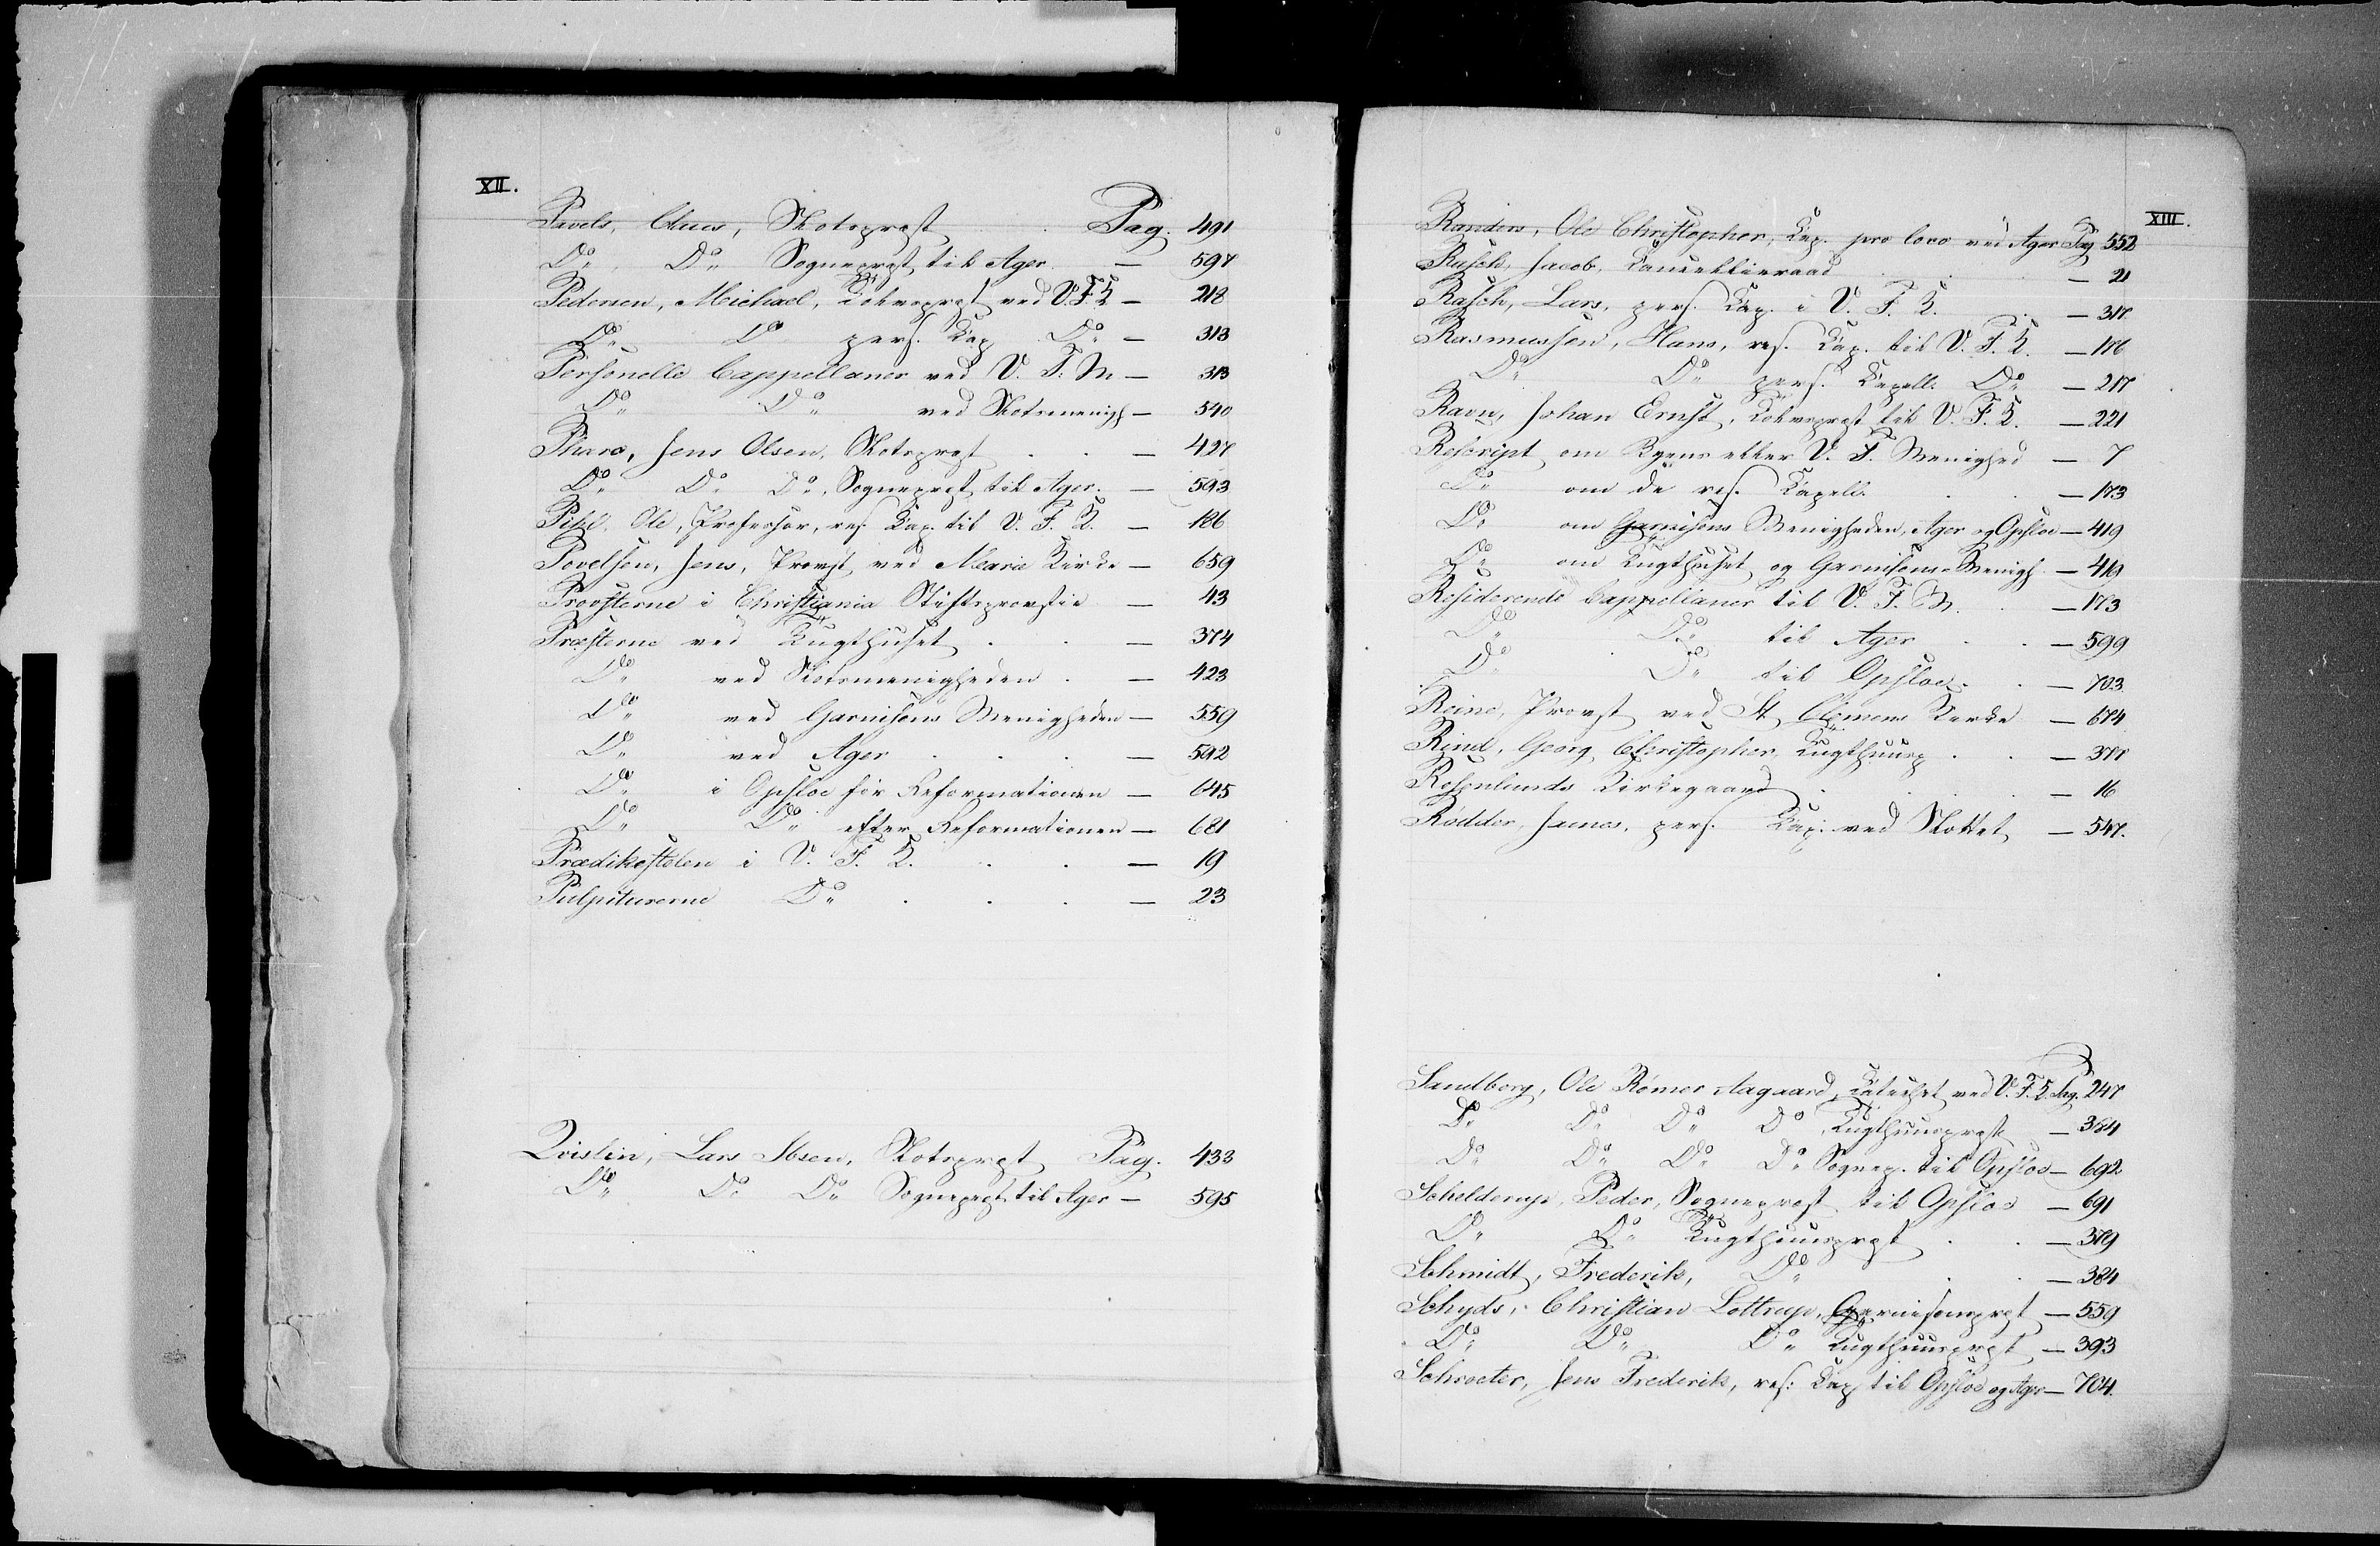 XII.
Pavels, Claus, Slotsprest . Pag. 491
Do Do Sogneprest til Ager. — 597
Pedersen, Michael, Tolvprest ved V. F. K — 218
Do Do pers. Kap Do — 313
Personelle Cappellaner ved V. F. M — 313
Do Do ved Slotsmenigh — 540
Pharo, Jens Olsen, Slotsprest . . — 427
Do Do Do, Sogneprest til Ager. — 593
Pihl, Ole, Professor, res. Kap. til V. F. K. — 186
Povelsen, Jens, Provst ved Marie Kirke — 659
Provsterne i Christiania Stiftsprovstie — 43
Præsterne ved Tugthuset . . — 374
Do ved Slotsmenigheden . — 423
Do ved Garnisons Menigheden — 559
Do ved Ager . . . — 592
Do i Opsloe før Reformationen — 645
Do Do efter Reformationen — 681
Prædikestolen i V. F. K. . . — 19
Pulpiturerne Do . . . — 23
Qvislin, Lars Ibsen, Slotsprest Pag. 433
Do Do Do Sogneprest til Ager — 595
XIII.
Randers, Ole Christopher, Kap. pro loco ved Ager Pag 552
Rasch, Jacob, Cancellieraad . . — 21
Rasch, Lars, pers. Kap. i V. F. K. . — 317
Rasmussen, Hans, res. Kap. til V. F. K. — 176
Do Do pers. Kapell. Do — 217
Ravn, Johan Ernst, Tolvprest til V. F. K. — 221
Rescript om Byens eller V. F. Menighed — 7
Do om de res. Kapell. . . — 173
Do om Garnisons Menigheden, Ager og Opsloe — 419
Do om Tugthuset og Garnisons Menigh. — 419
Residerende Cappellaner til V. F. M. . — 173
Do Do til Ager . . — 599
Do Do til Opsloe . . — 703
Reine, Provst ved St. Clemens Kirke — 674
Rind, Georg Christopher, Tugthuusp . . — 377
Rosenlunds Kirkegaard . . . — 16
Rødder, James, pers. Kap. ved Slottet — 547.
Sandberg, Ole Rømer Aagaard, Catechet ved V. F. K. Pag. 247
Do Do Do Do, Tugthuusprest — 384
Do Do Do Do Sognep. til Opsloe — 692
Schelderup, Peder, Sogneprest til Opsloe — 691
Do Do Tugthuusprest . . — 379
Schmidt, Frederik, Do . . — 384
Schyds, Christian Lottrup, Garnisonsprest — 559
Do Do Do Tugthuusprest — 393
Schroeter, Jens Frederik, res: Kap til Opsloe og Ager — 704.